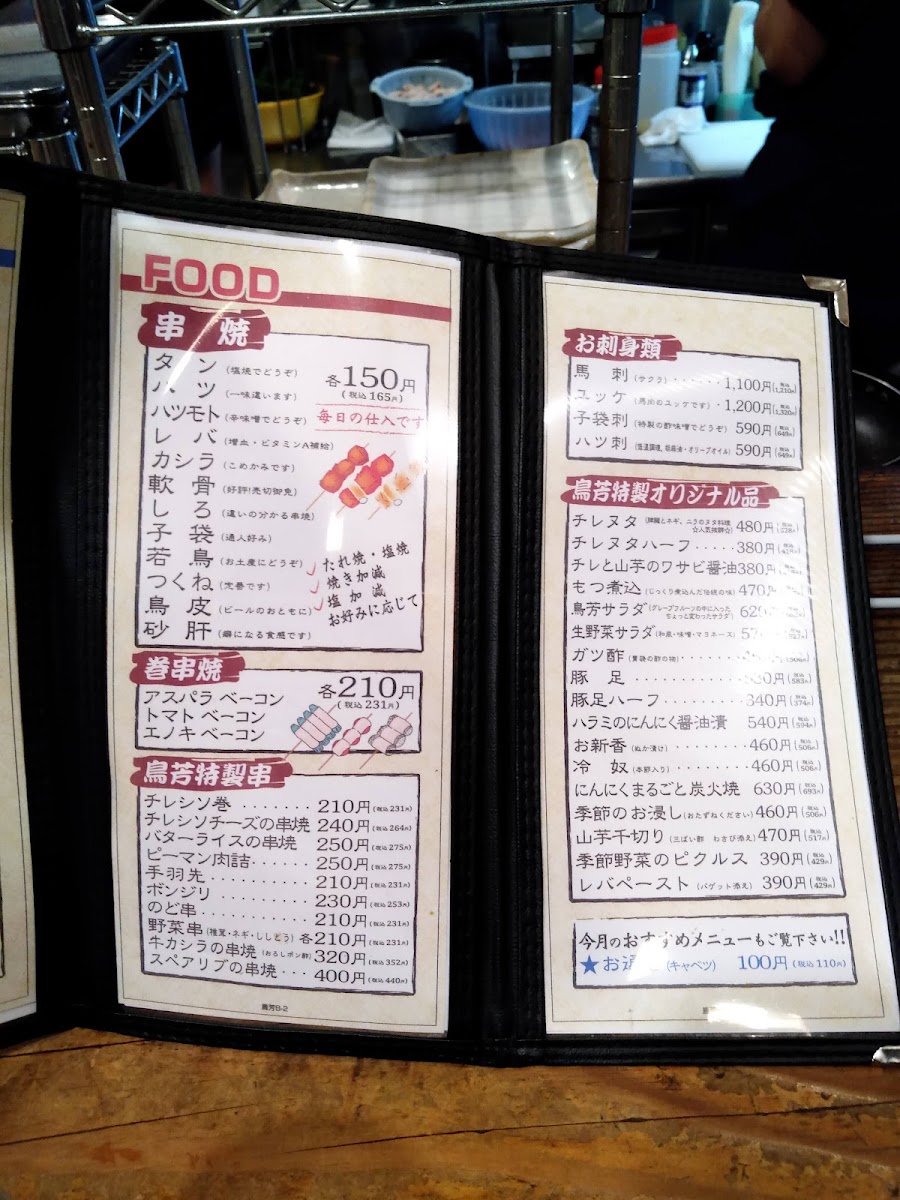 FOOD
串焼
タン (塩焼でどうぞ)
ハツ (一味違います)
ハツモト (辛味噌でどうぞ)
レバ (増血・ビタミンA補給)
カシラ (こめかみです)
軟骨 (好評!売切御免)
しろ (違いの分かる串焼)
子袋 (通人好み)
若鳥 (お土産にどうぞ)
つくね (定番です)
鳥皮 (ビールのおともに)
砂肝 (癖になる食感です)
各150円
(税込165円)
毎日の仕入です
たれ焼・塩焼
焼き加減
塩加減
お好みに応じて
巻串焼
アスパラベーコン
トマトベーコン
エノキベーコン
各210円
(税込231円)
鳥芳特製串
チレシソ巻 ········ 210円(税込231円)
チレシソチーズの串焼 240円(税込264円)
バターライスの串焼 250円(税込275円)
ピーマン肉詰······ 250円(税込275円)
手羽先 ·········· 210円(税込231円)
ボンジリ ········ 230円(税込253円)
のど串 ·········· 210円(税込231円)
野菜串(椎茸・ネギ・ししとう) 各210円(税込231円)
牛カシラの串焼(おろしポン酢) 320円(税込352円)
スペアリブの串焼 ··· 400円(税込440円)
鳥芳B-2
お刺身類
馬刺 (サクラ) ······ 1,100円(税込1,210円)
ユッケ (馬肉のユッケです) · 1,200円(税込1,320円)
子袋刺 (特製の酢味噌でどうぞ) 590円(税込649円)
ハツ刺 (低温調理、胡麻油・オリーブオイル) 590円(税込649円)
鳥芳特製オリジナル品
チレヌタ (脾臓とネギ、ニラのヌタ料理 ☆人気抜群☆) 480円(税込528円)
チレヌタハーフ ····· 380円
チレと山芋のワサビ醤油380円
もつ煮込 (じっくり煮込んだ伝統の味) 470円
鳥芳サラダ (グレープフルーツの中に入ったちょっと変わったサラダ)
生野菜サラダ (和風・味噌・マヨネーズ)
ガツ酢 (胃袋の酢の物) (税込506円)
豚足 (税込583円)
豚足ハーフ ········ 340円(税込374円)
ハラミのにんにく醤油漬 540円(税込594円)
お新香 (ぬか漬け) ········ 460円(税込506円)
冷奴 (本節入り) ········ 460円(税込506円)
にんにくまるごと炭火焼 630円(税込693円)
季節のお浸し(おたずねください) 460円(税込506円)
山芋千切り (三ばい酢 わさび添え) 470円(税込517円)
季節野菜のピクルス 390円(税込429円)
レバペースト (バゲット添え) 390円(税込429円)
今月のおすすめメニューもご覧下さい!!
★お通し (キャベツ) 100円(税込110円)